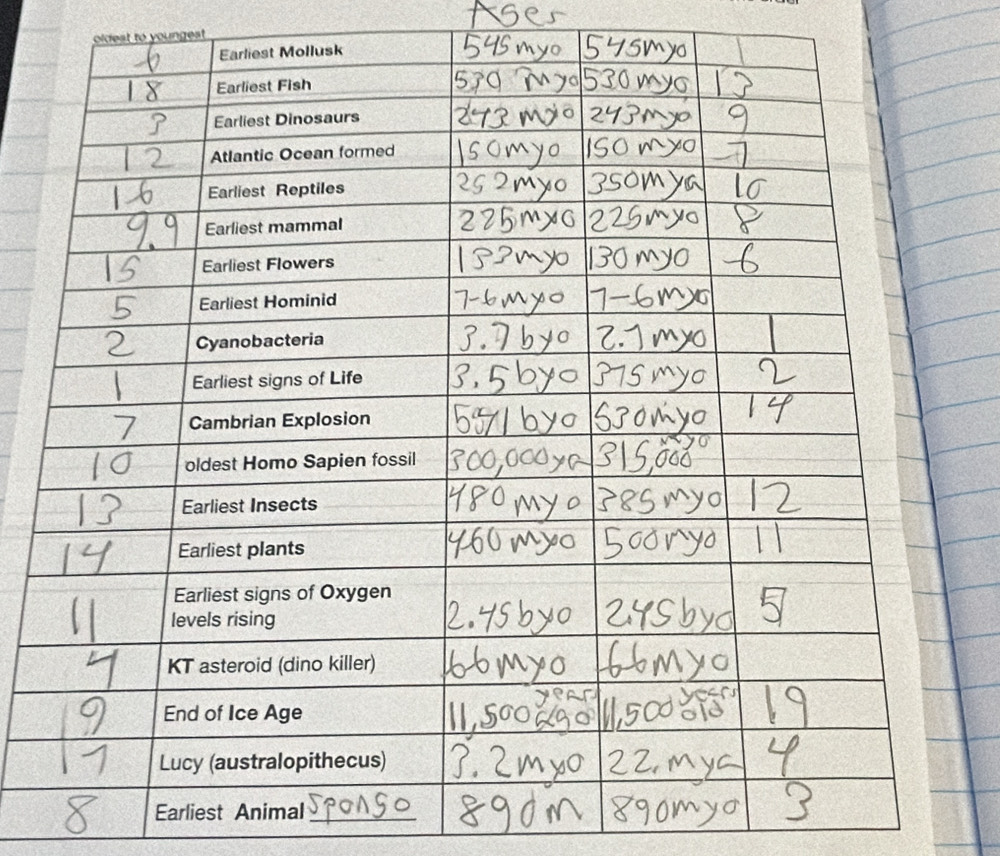 Ages
oldest to youngest
6 Earliest Mollusk 545 myo 545myo 1
18 Earliest Fish 530 myo 530 myo 13
3 Earliest Dinosaurs 243 myo 243myo 9
12 Atlantic Ocean formed 150myo 150 myo 7
16 Earliest Reptiles 252myo 350mya 10
9.9 Earliest mammal 225myo 225myo 8
15 Earliest Flowers 133myo 130myo 6
5 Earliest Hominid 7-6myo 7-6myo
2 Cyanobacteria 3.7byo 2.7myo 1
1 Earliest signs of Life 3.5byo 375myo 2
7 Cambrian Explosion byo 530myo 14
10 oldest Homo Sapien fossil 300,000ya 315,000 myo
13 Earliest Insects 480myo 385myo 12
14 Earliest plants 460myo 500myo 11
Earliest signs of Oxygen
11 levels rising 2.45byo 2.45byo 5
4 KT asteroid (dino killer) 66myo 66myo
19 End of Ice Age 11,500 years ago 11,500 years old 19
17 Lucy (australopithecus) 3.2myo 22.mya 4
8 Earliest Animal Spongo 890m 890myo 3